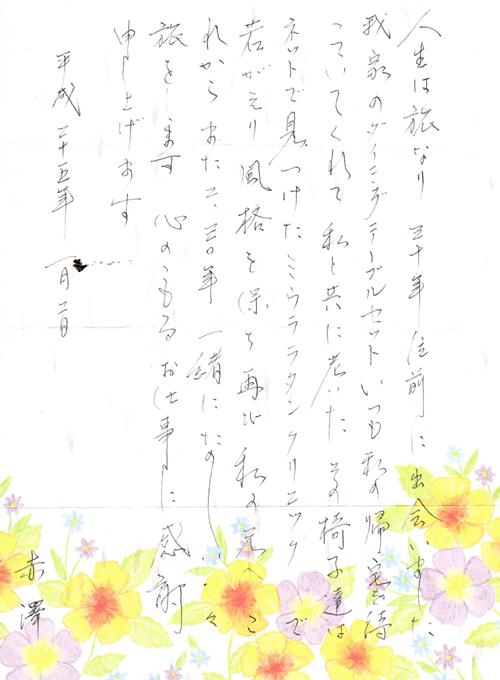 人生は旅なり 三十年位前に出会いました
我家のダイニングテーブルセット いつも私の帰宅を待
っていてくれて 私と共に老いた その椅子達は
ネットで見つけたミウララタンクリニックで
若がえり 風格を保ち再び私の元へ こ
れからまた二、三十年 一緒にたのしい
旅をします 心のこもるお仕事に感謝
申し上げます
平成二十五年 一月二日
赤澤